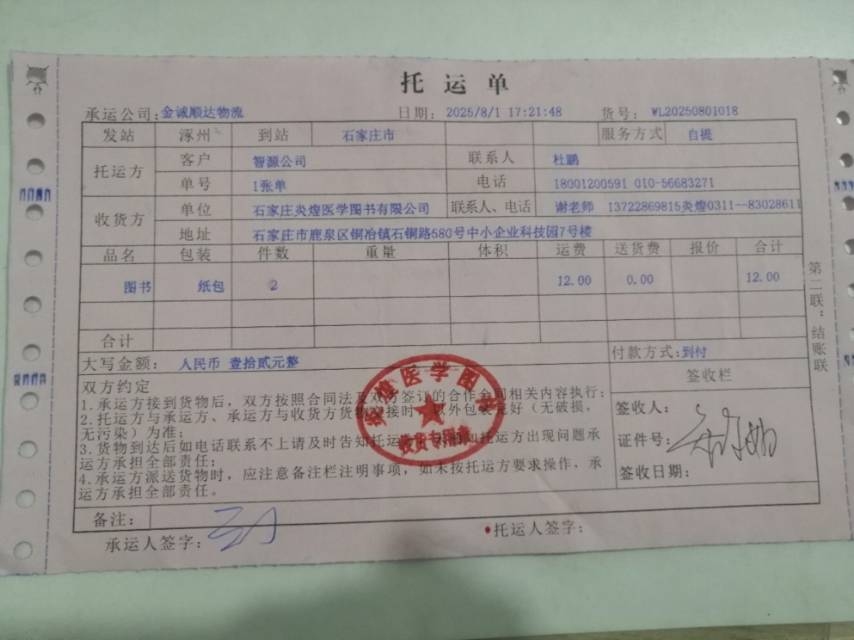 托运单
承运公司:金诚顺达物流 日期: 2025/8/1 17:21:48 货号: WL20250801018
发站 涿州 到站 石家庄市 服务方式 自提
托运方 客户 智源公司 联系人 杜鹏
单号 1张单 电话 18001200591 010-56683271
收货方 单位 石家庄炎煌医学图书有限公司 联系人、电话 谢老师 13722869815炎煌0311--83028611
地址 石家庄市鹿泉区铜冶镇石铜路580号中小企业科技园7号楼
品名 包装 件数 重量 体积 运费 送货费 报价 合计
图书 纸包 2 12.00 0.00 12.00
合计
大写金额: 人民币 壹拾贰元整 付款方式:到付
双方约定 签收栏
1.承运方接到货物后,双方按照合同法及双方签订的合作合同相关内容执行;
2.托运方与承运方、承运方与收货方货物交接时,以外包装完好(无破损,
无污染)为准;
3.货物到达后如电话联系不上请及时告知托运方,如未告知托运方出现问题承
运方承担全部责任;
4.承运方派送货物时,应注意备注栏注明事项,如未按托运方要求操作,承
运方承担全部责任。
签收人:
证件号:
签收日期:
备注:
承运人签字: 托运人签字:
第二联:结账联
医学图
收货专用章